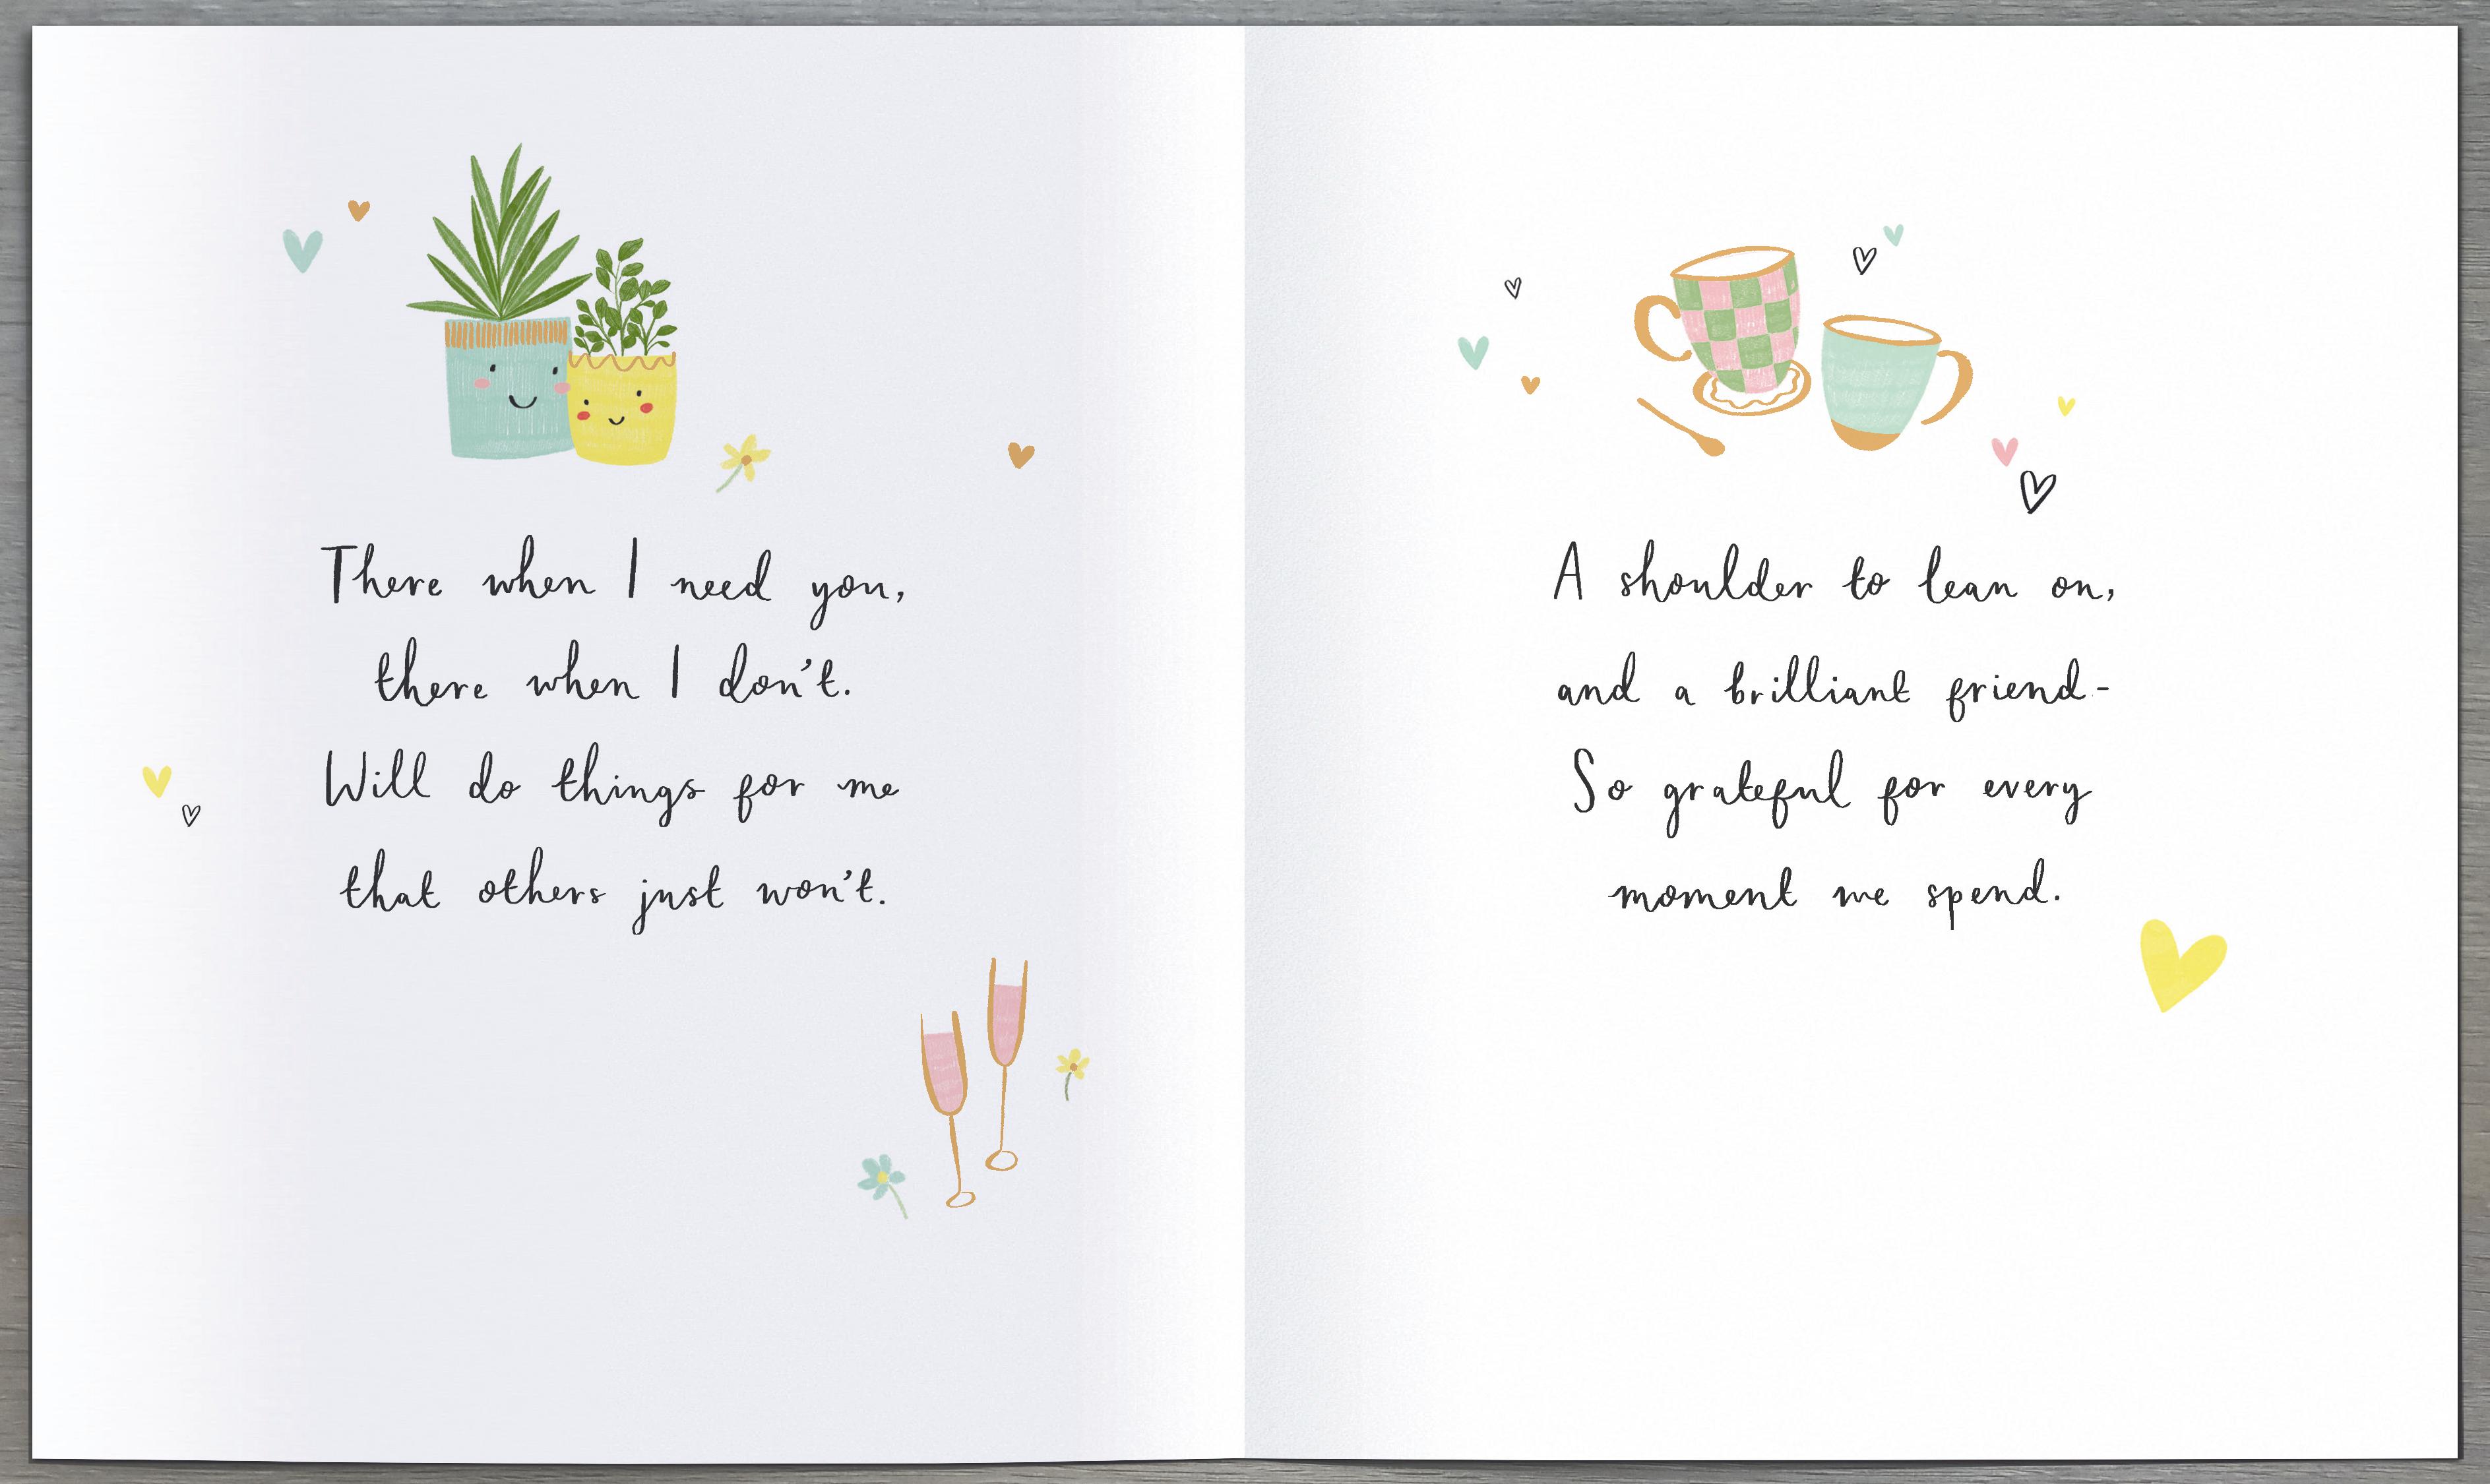 There when I need you,
there when I don't.
Will do things for me
that others just won't.
A shoulder to lean on,
and a brilliant friend-
So grateful for every
moment we spend.